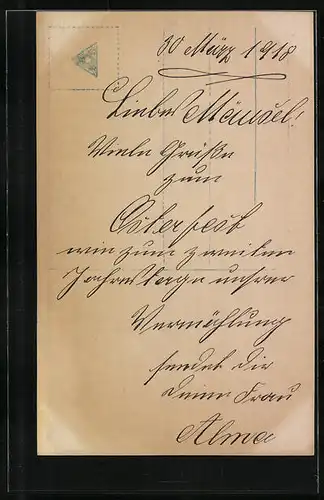 30 März 1918
Liebes Mäusel!
Viele Grüße
zum
Osterfest
wie zum zweiten
Jahrestage unsrer
Vermählung
sendet dir
deine Frau
Alma